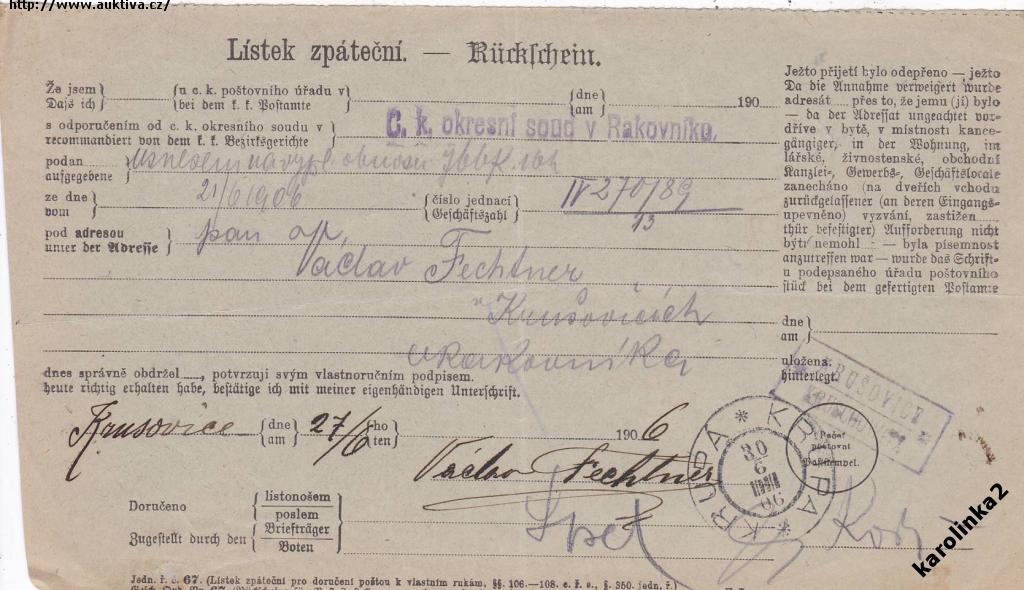 http://www.auktiva.cz/
Lístek zpáteční. — Rückschein.
Že jsem
Daſs ich
u c. k. poštovního úřadu v
bei dem k. k. Postamte
dne
am
190
s odporučením od c. k. okresního soudu v
recommandiert von dem k. k. Bezirksgerichte
C. k. okresní soud v Rakovníku,
podan
aufgegebene
ze dne
vom
21/6 1906
číslo jednací
Geschäftszahl
IV 270/89
13
pod adresou
unter der Adresse
pan
Václav Fechtner
v Krušovicích
u Rakovníka
dnes správně obdržel, potvrzuji svým vlastnoručním podpisem.
heute richtig erhalten habe, bestätige ich mit meiner eigenhändigen Unterschrift.
Krusovice
dne
am
27/6
ho
ten
190 6
Václav Fechtner
Doručeno
Zugestellt durch den
listonošem
poslem
Briefträger
Boten
Jedn. ř. č. 67. (Lístek zpáteční pro doručení poštou k vlastním rukám, §§. 106.—108. c. ř. s., §. 350. jedn. ř.)
Ježto přijetí bylo odepřeno — ježto
Da die Annahme verweigert wurde
adresát přes to, že jemu (jí) bylo
— da der Adressat ungeachtet vor-
dříve v bytě, v místnosti kance-
gängiger, in der Wohnung, im
lářské, živnostenské, obchodní
Kanzlei-, Gewerbs-, Geschäftslocale
zanecháno (na dveřích vchodu
zurückgelassener (an deren Eingangs-
upevněno) vyzvání, zastižen
thür befestigter) Aufforderung nicht
býti nemohl — byla písemnost
anzutreffen war — wurde das Schrift-
u podepsaného úřadu poštovního
stück bei dem gefertigten Postamte
dne
am
uložena.
hinterlegt.
KRUŠOVICE
KRUPA * KRUPA *
30
6
06
Pečeť
poštovní
karolinka2